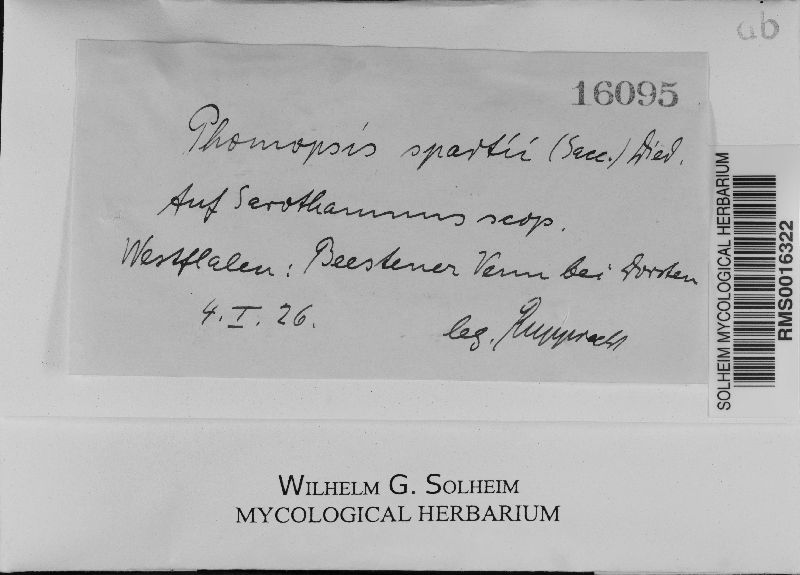 ab
16095
Phomopsis spartii (Sacc.) Died.
Auf Sarothamnus scop.
Westflalen: Beestener Venn bei Dorsten
4. I. 26.
leg. Rupprecht
SOLHEIM MYCOLOGICAL HERBARIUM
RMS0016322
WILHELM G. SOLHEIM
MYCOLOGICAL HERBARIUM